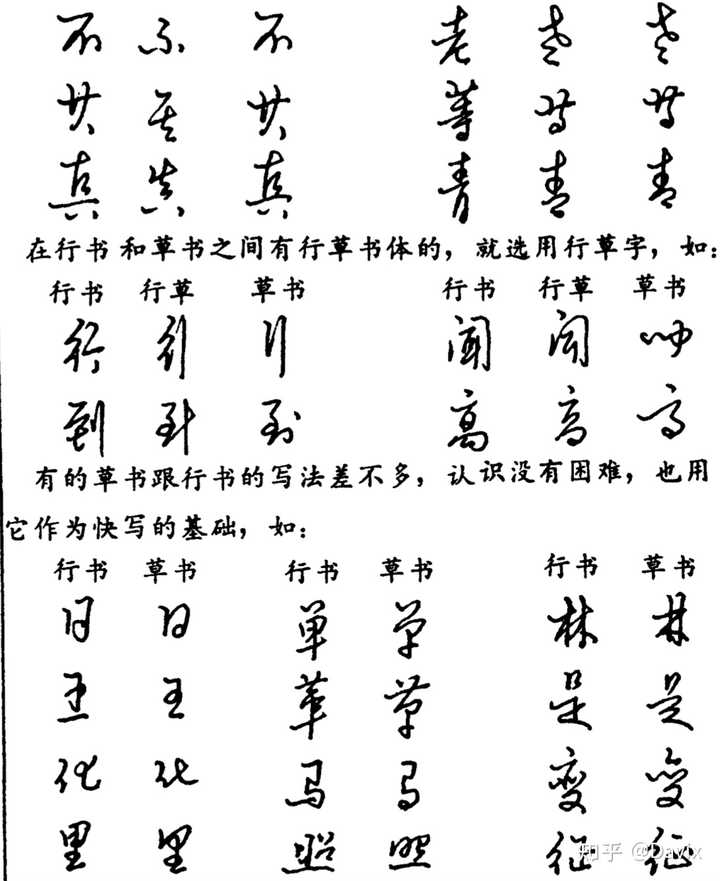 不 不 不 老 老 老
其 其 其 等 等 等
真 真 真 青 青 青
在行书和草书之间有行草书体的，就选用行草字，如：
行书 行草 草书 行书 行草 草书
行 行 行 闻 闻 闻
到 到 到 高 高 高
有的草书跟行书的写法差不多，认识没有困难，也用
它作为快写的基础，如：
行书 草书 行书 草书 行书 草书
日 日 单 单 林 林
王 王 革 革 是 是
化 化 马 马 变 变
里 里 照 照 征 征
知乎 @Davix